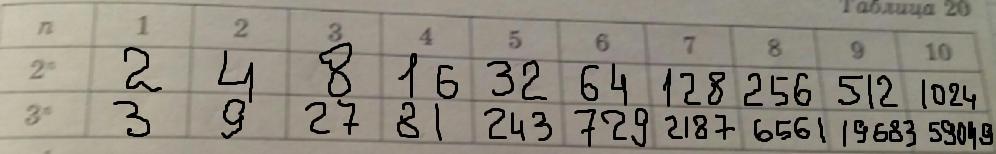 Таблица 20
n 1 2 3 4 5 6 7 8 9 10
2ⁿ 2 4 8 16 32 64 128 256 512 1024
3ⁿ 3 9 27 81 243 729 2187 6561 19683 59049